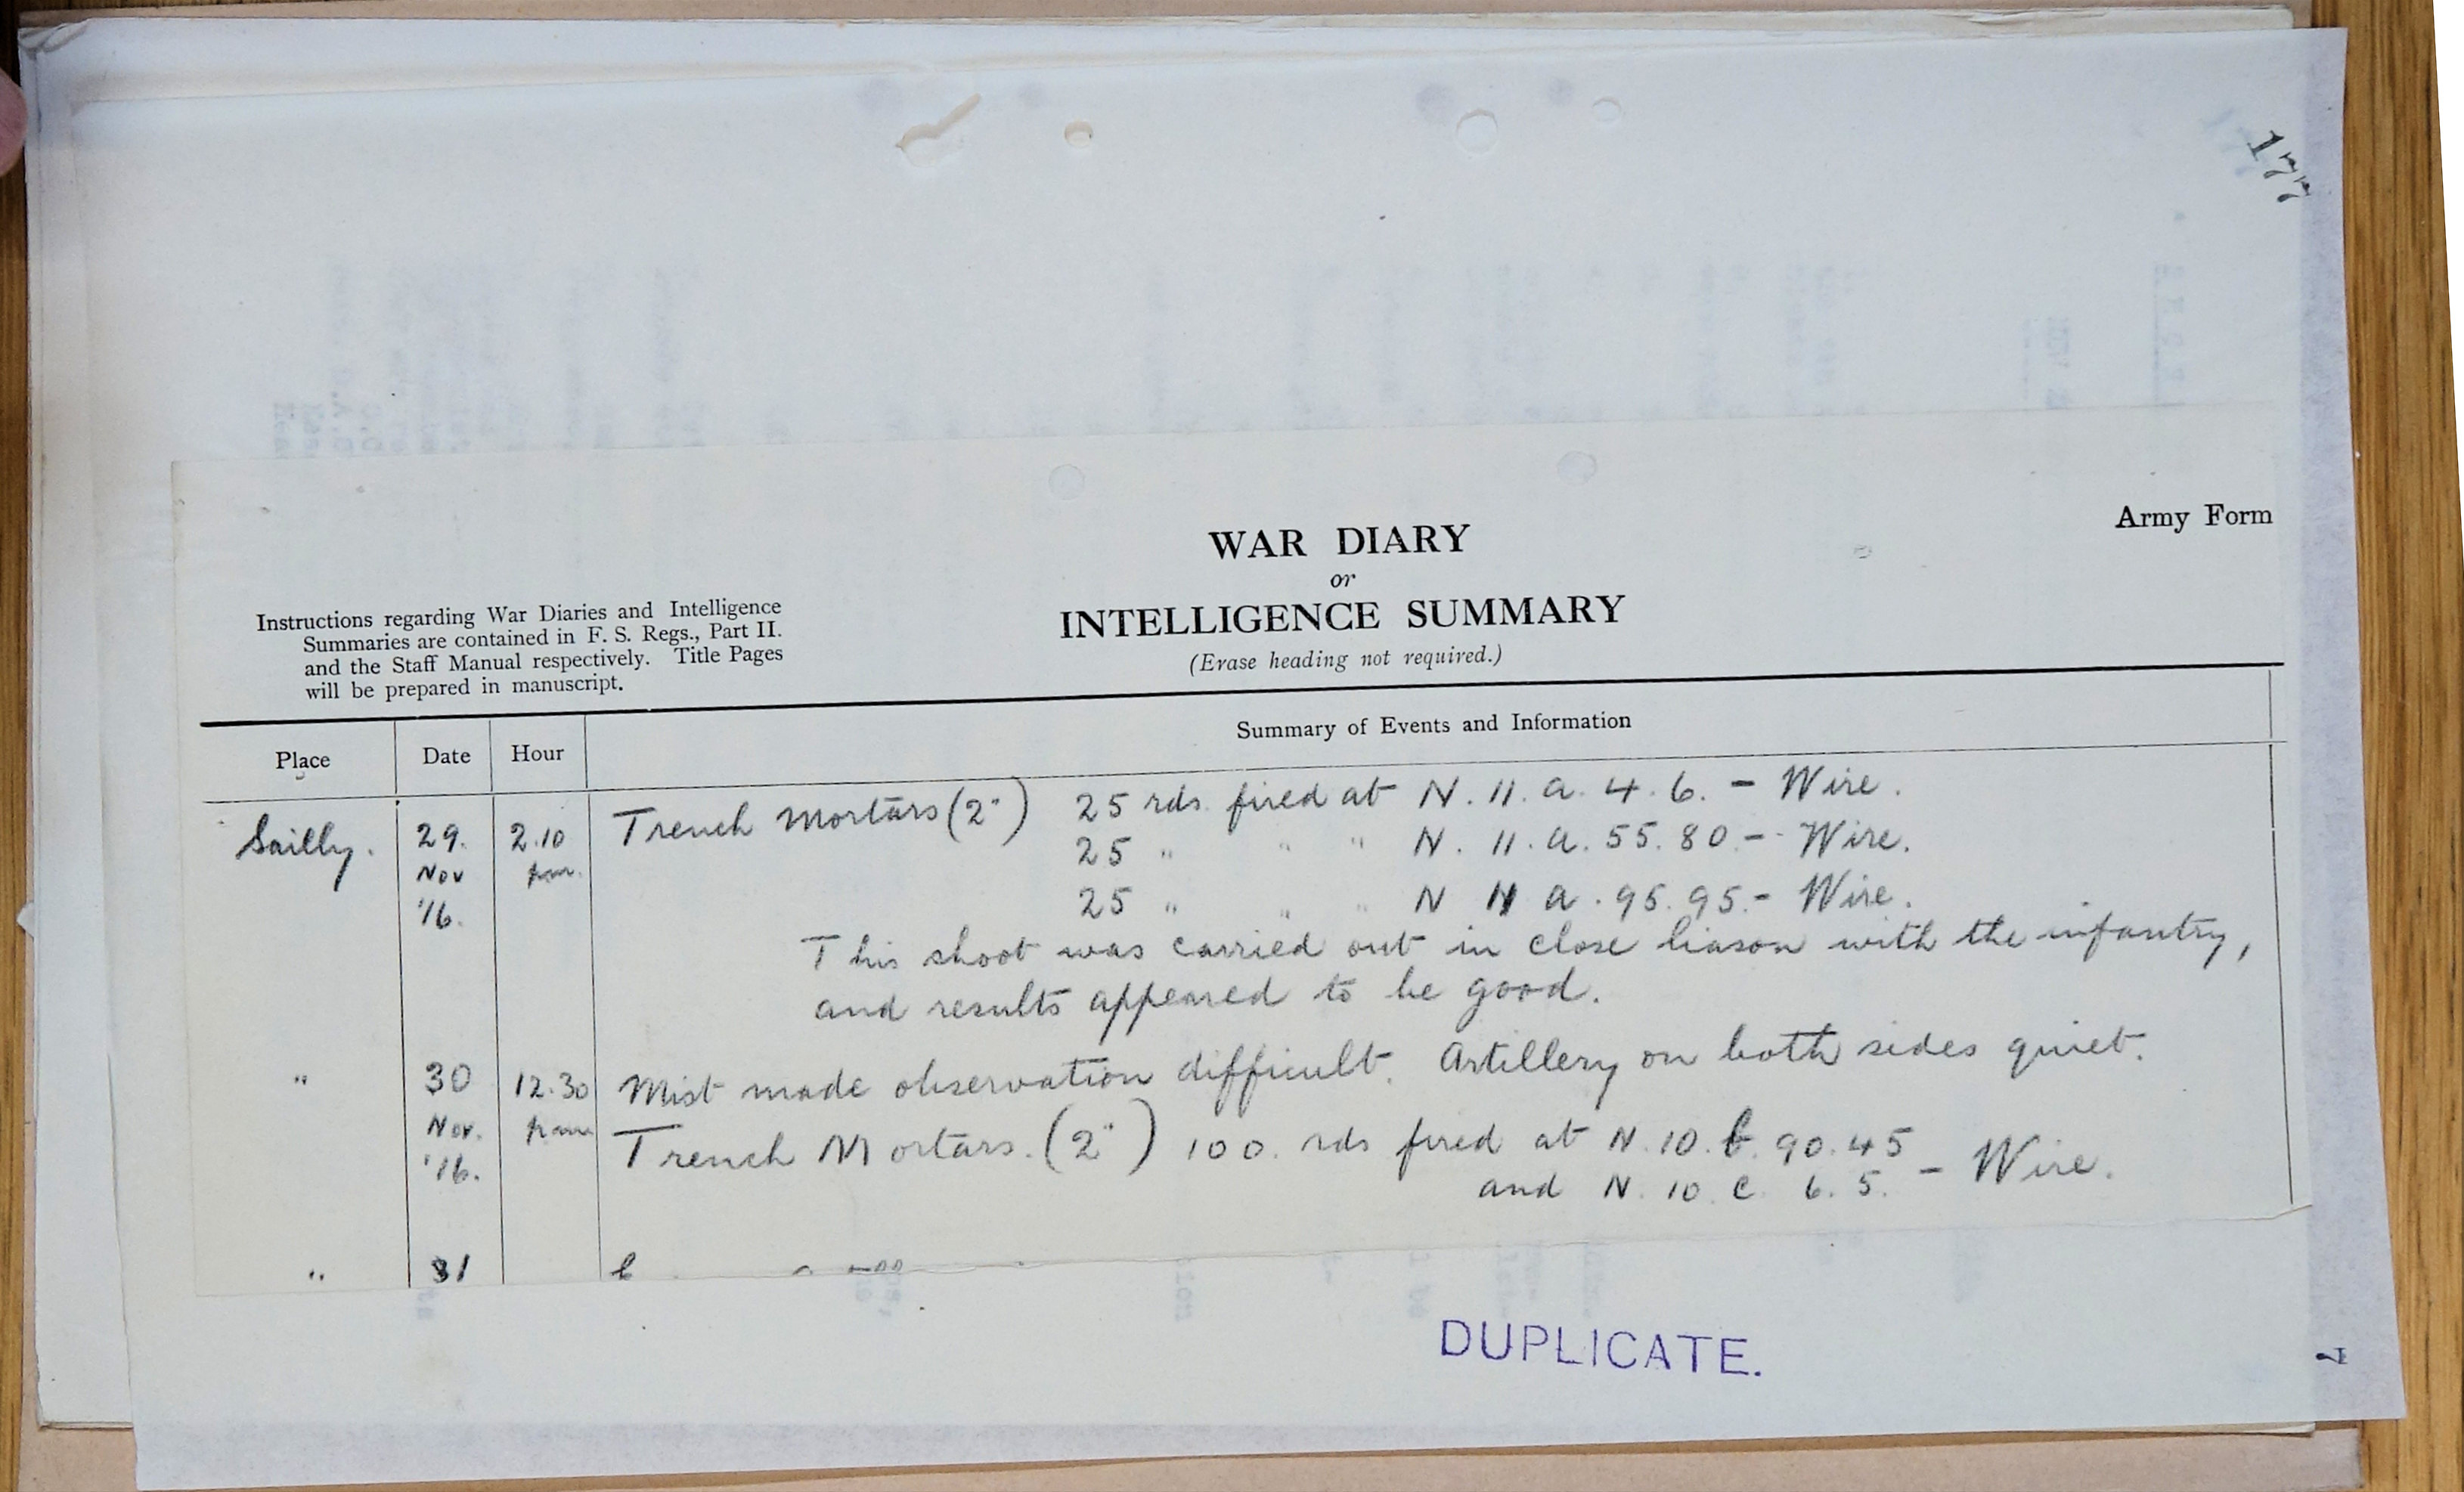 177
Army Form
WAR DIARY
or
INTELLIGENCE SUMMARY
(Erase heading not required.)
Instructions regarding War Diaries and Intelligence
Summaries are contained in F. S. Regs., Part II.
and the Staff Manual respectively. Title Pages
will be prepared in manuscript.
Place Date Hour Summary of Events and Information
Sailly. 29. Nov '16. 2.10 pm. Trench Mortars (2") 25 rds. fired at N. 11. a. 4. 6. - Wire.
25 " " " N. 11. a. 55. 80 - Wire.
25 " " " N 11 a. 95. 95. - Wire.
This shoot was carried out in close liason with the infantry,
and results appeared to be good.
" 30 Nov. '16. 12.30 pm Mist made observation difficult. Artillery on both sides quiet.
Trench Mortars. (2") 100. rds fired at N. 10. b. 90. 45
and N. 10 c. 6. 5. - Wire.
" 31
DUPLICATE.